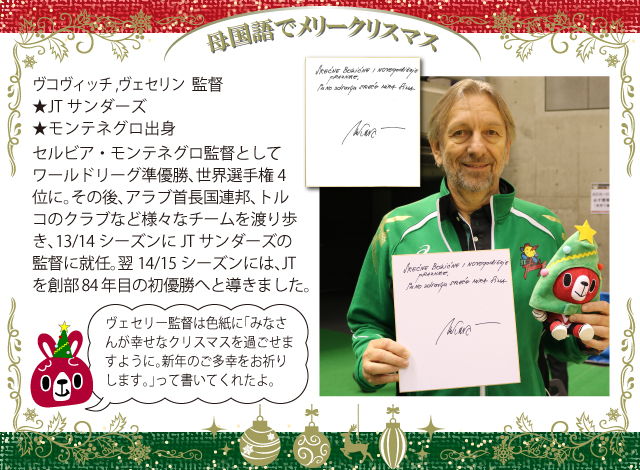 母国語でメリークリスマス
ヴコヴィッチ,ヴェセリン 監督
★JTサンダーズ
★モンテネグロ出身
セルビア・モンテネグロ監督として
ワールドリーグ準優勝、世界選手権4
位に。その後、アラブ首長国連邦、トル
コのクラブなど様々なチームを渡り歩
き、13/14シーズンにJTサンダーズの
監督に就任。翌14/15シーズンには、JT
を創部84年目の初優勝へと導きました。
ヴェセリー監督は色紙に「みなさ
んが幸せなクリスマスを過ごせま
すように。新年のご多幸をお祈り
します。」って書いてくれたよ。
SREĆNE BOŽIĆNE I NOVOGODIŠNJE
PRAZNIKE,
PUNO ZDRAVLJA SREĆE MIRA
SREĆNE BOŽIĆNE I NOVOGODIŠNJE
PRAZNIKE,
PUNO ZDRAVLJA SREĆE MIRA